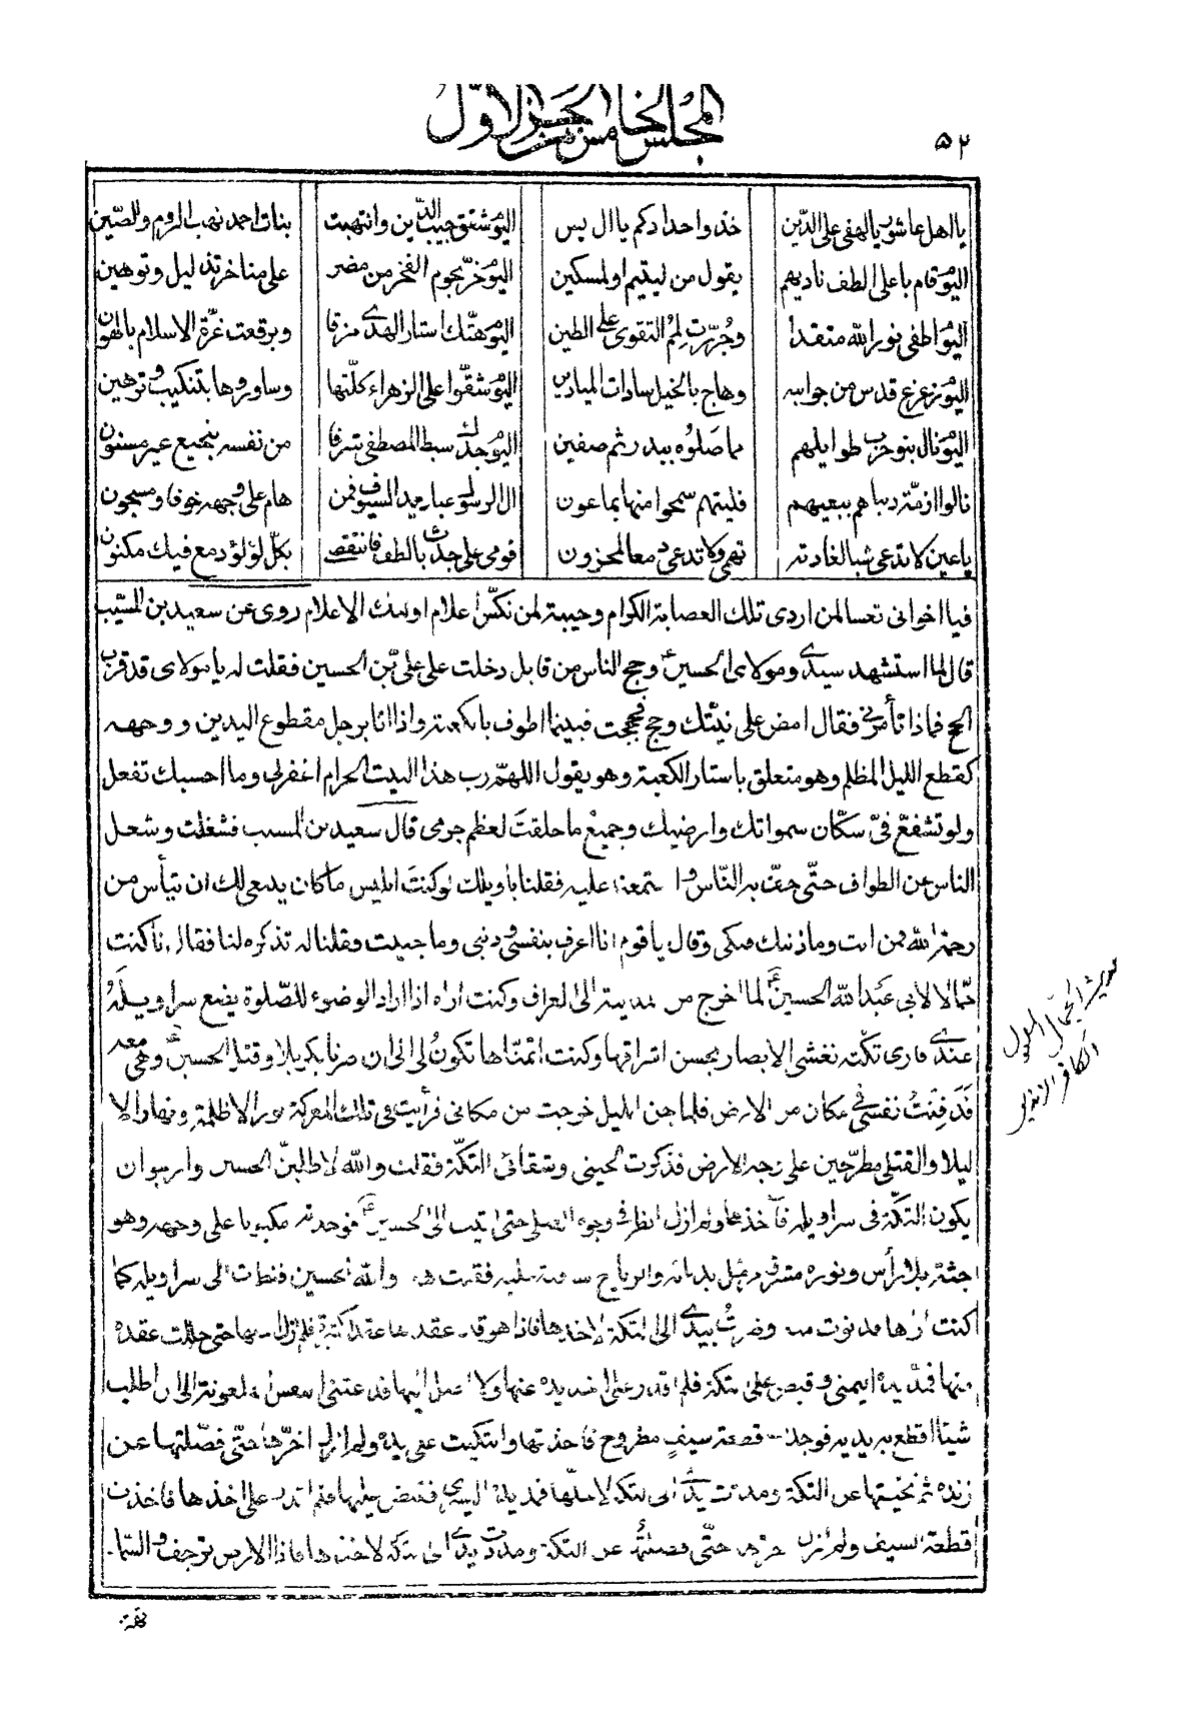 المجلس الخامس من الجزء الاول
٥٢
يا اهل عاشور يا لهفى على الدّين خذوا حدادكم يا ال يس اليوم شقق جيب الدّين وانتهبت بنات احمد نهب الروم والصّين
اليوم قام باعلى الطف ناديهم يقول من ليتيم او لمسكين اليوم خرّ نجوم الفخر من مضر على مناخر تذليل وتوهين
اليوم اطفى نور الله متقدا وجُرّرت لهم التقوى على الطين اليوم هتّك استار الهدى مزقا وبرقعت غرّة الاسلام بالهون
اليوم زعزع قدس من جوانبه وطاح بالخيل سادات الميادين اليوم شقّوا على الزهراء كلّتها وساوروها بتنكيب وتوهين
اليوم نال بنو حرب طوايلهم مما صلوه ببدر ثم صفين اليوم جدّل سبط المصطفى شرقا من نفسه بنجيع غير مسنون
نالوا ازمّة دنياهم ببغيهم فليتهم سمحوا منها بماعون ال الرسول عباديد السيوف فمن هام على وجهه خوفا ومسجون
يا عين لا تدعى شيا لغادية تهمى ولا تدعى دمعا لمحزون قومى على جدث بالطف فانتقض بكلّ لؤلؤ دمع فيك مكنون
فيا اخوانى تعسا لمن اردى تلك العصابة الكرام وخيبة لمن نكّس اعلام اولئك الاعلام روى عن سعيد بن المسّيب
قال لما استشهد سيدى ومولاى الحسين ع وحج الناس من قابل دخلت على على بن الحسين فقلت له يا مولاى قد قرب
الحج فماذا تأمرنى فقال امض على نيّتك وحج فحججت فبينما اطوف بالكعبة واذا انا برجل مقطوع اليدين ووجهه
كقطع الليل المظلم وهو متعلق باستار الكعبة وهو يقول اللهمّ رب هذا البيت الحرام اغفر لى وما احسبك تفعل
ولو تشفع فىّ سكّان سمواتك وارضيك وجميع ما خلقت لعظم جرمى قال سعيد بن المسيب فشغلت وشغل
الناس عن الطواف حتّى حفّ به النّاس واجتمعنا عليه فقلنا يا ويلك لو كنت ابليس ما كان ينبغى لك ان تيأس من
رحمة الله فمن انت وما ذنبك فبكى وقال يا قوم انا اعرف بنفسى وذنبى وما جنيت وقلنا له تذكره لنا فقال انا كنت
جمّالا لابى عبد الله الحسين ع لما خرج من المدينة الى العراق وكنت اراه اذا اراد الوضوء للصّلوة يضع سراويله
عندى فارى تكّته تغشى الابصار بحسن اشراقها وكنت اتمنّاها تكون لى الى ان صرنا بكربلا وقتل الحسين ع وهى معه
فدفنت نفسى فى مكان من الارض فلما جن الليل خرجت من مكانى فرأيت فى تلك المعركة نورا لا ظلمة ونهارا لا
ليلا والقتلى مطرّحين على وجه الارض فذكرت لحينى وشقائى التكّة فقلت والله لاطلبنّ الحسين وارجو ان
يكون التكّة فى سراويله فآخذها ولم ازل انظر فى وجوه القتلى حتى اتيت الى الحسين ع فوجدته مكبوبا على وجهه وهو
جثة بلا رأس ونوره مشرق مرمّل بدمائه والرياح سافية عليه فقلت هذا والله الحسين فنظرت الى سراويله كما
كنت اراها فدنوت منه وضربت بيدى الى التكة لاخذها فاذا هو قد عقدها عقدا كثيرة فلم ازل احلّها حتى حللت عقدة
منها فمدّ يده اليمنى وقبض على التكة فلم اقدر على اخذ يده عنها ولا اصل اليها فدعتنى النفس الملعونة الى ان اطلب
شيئا اقطع به يديه فوجدت قطعة سيف مطروح فاخذتها واتكيت على يده ولم ازل اخرّها حتّى فصّلتها عن
زنده ثم نحيتها عن التكة ومددت يدى الى التكة لاحلّها فمد يده اليسرى فقبض عليها فلم اقدر على اخذها فاخذت
قطعة السيف ولم ازل اخرّها حتّى فصلتها عن التكة ومددت يدى الى التكة لاخذها فاذا الارض ترجف والسّماء
حديث الجمّال
الكافر